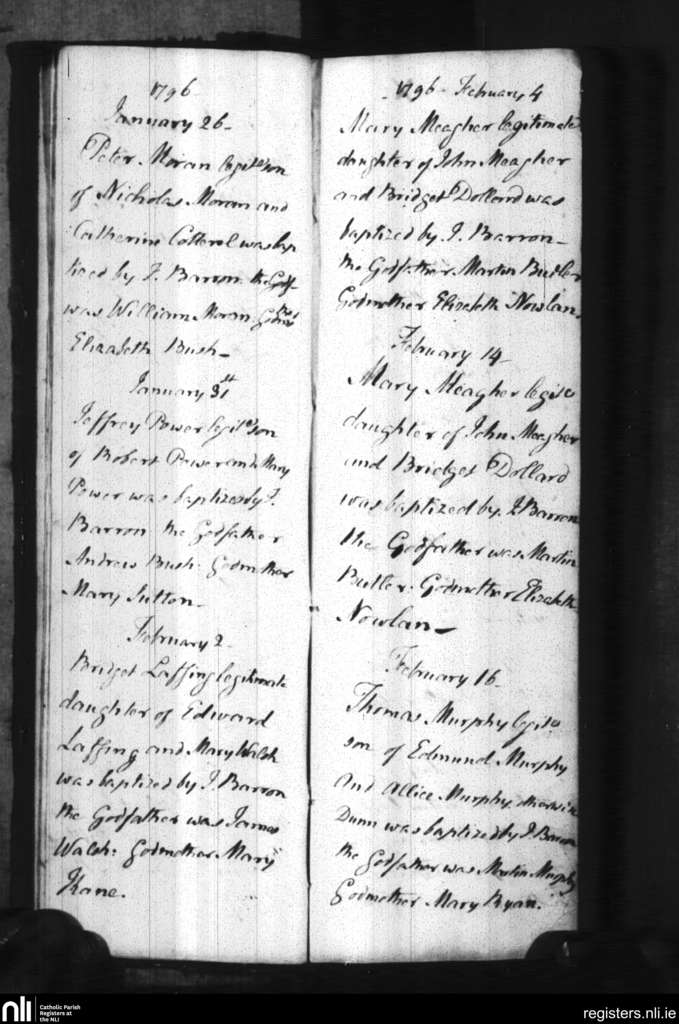 1796
January 26
Peter Moran legite son
of Nicholas Moran and
Catherine Cotterel was bap
tized by J. Barron the Godfr
was William Moran Godmother
Elizabeth Bush
January 31st
Jeffrey Power legite son
of Robert Power and Mary
Power was baptized by J.
Barron the Godfather
Andrew Bush. Godmother
Mary Sutton
February 2
Bridget Laffing legitimate
daughter of Edward
Laffing and Mary Walsh
was baptized by J. Barron
the Godfather was James
Walsh: Godmother Mary
Kane.
1796 February 4
Mary Meagher legitimate
daughter of John Meagher
and Bridget Dollard was
baptized by J. Barron
the Godfather Martin Butler
Godmother Elizabeth Nowlan
February 14
Mary Meagher legite
daughter of John Meagher
and Bridget Dollard
was baptized by J. Barron
the Godfather was Martin
Butler. Godmother Elizabeth
Nowlan
February 16
Thomas Murphy legite
son of Edmund Murphy
and Allice Murphy otherwise
Dunn was baptized by J. Barron
the Godfather was Martin Murphy
Godmother Mary Ryan.
nli
Catholic Parish
Registers at
the NLI
registers.nli.ie